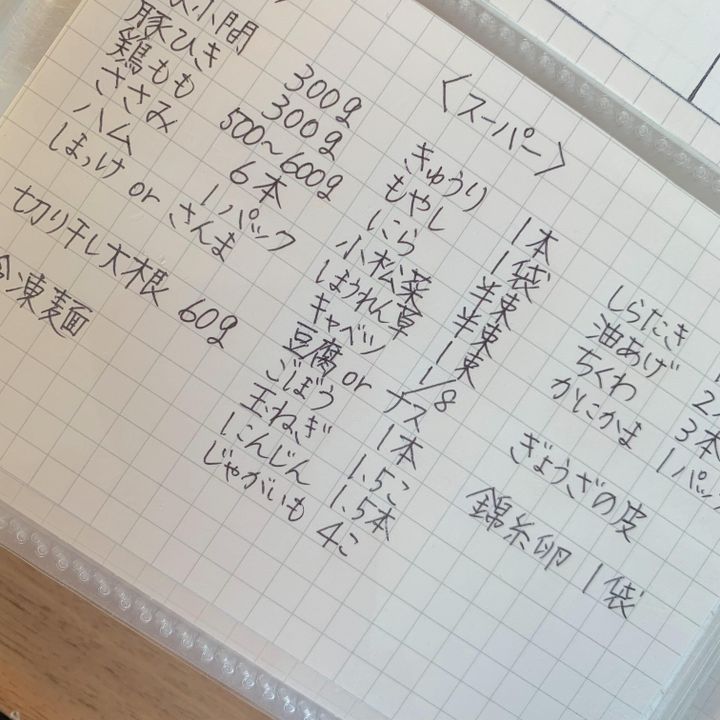 〈スーパー〉
小間 300g
豚ひき 300g
鶏もも 500〜600g
ささみ 6本
ハム 1パック
ほっけ or さんま
切り干し大根 60g
冷凍麺
きゅうり 1本
もやし 1袋
にら 半束
小松菜 半束
ほうれん草 1束
キャベツ 1/8
豆腐 or ナス
ごぼう 1本
玉ねぎ 1.5こ
にんじん 1.5本
じゃがいも 4こ
しらたき
油あげ 2
ちくわ 3本
かにかま 1パック
ぎょうざの皮
錦糸卵 1袋